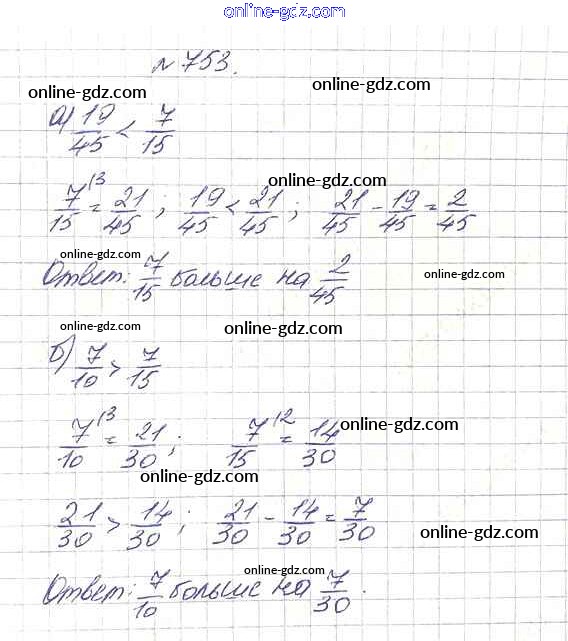 online-gdz.com
№753.
online-gdz.com online-gdz.com
а) 19/45 < 7/15
online-gdz.com
7/15 ⁽³ = 21/45 ; 19/45 < 21/45 ; 21/45 - 19/45 = 2/45
online-gdz.com
Ответ: 7/15 больше на 2/45
online-gdz.com
online-gdz.com online-gdz.com
б) 7/10 > 7/15
online-gdz.com
7/10 ⁽³ = 21/30 ; 7/15 ⁽² = 14/30
online-gdz.com
21/30 > 14/30 ; 21/30 - 14/30 = 7/30
online-gdz.com
online-gdz.com
Ответ: 7/10 больше на 7/30.